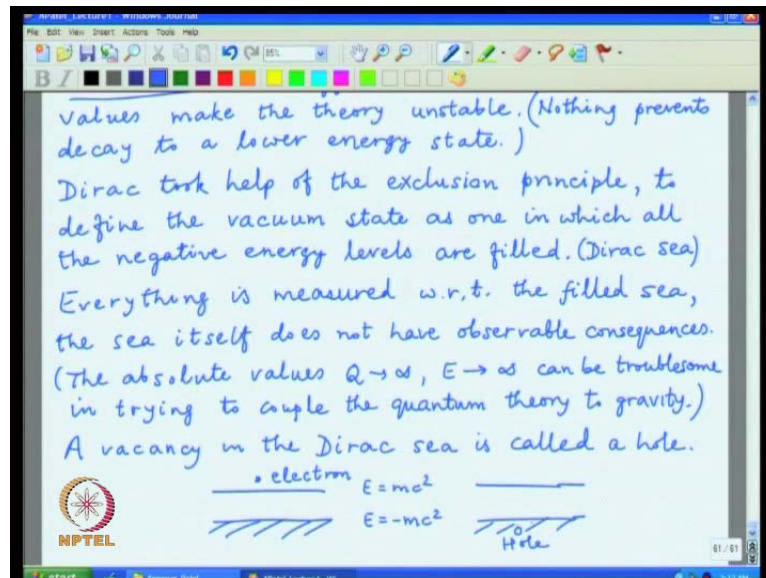 APatel_Lecture1 - Windows Journal
File Edit View Insert Actions Tools Help
85%
B I
values make the theory unstable. (Nothing prevents
decay to a lower energy state.)
Dirac took help of the exclusion principle, to
define the vacuum state as one in which all
the negative energy levels are filled. (Dirac sea)
Everything is measured w.r.t. the filled sea,
the sea itself does not have observable consequences.
(The absolute values Q → ∞, E → ∞ can be troublesome
in trying to couple the quantum theory to gravity.)
A vacancy in the Dirac sea is called a hole.
electron E = mc²
E = -mc²
Hole
NPTEL
61/61
start